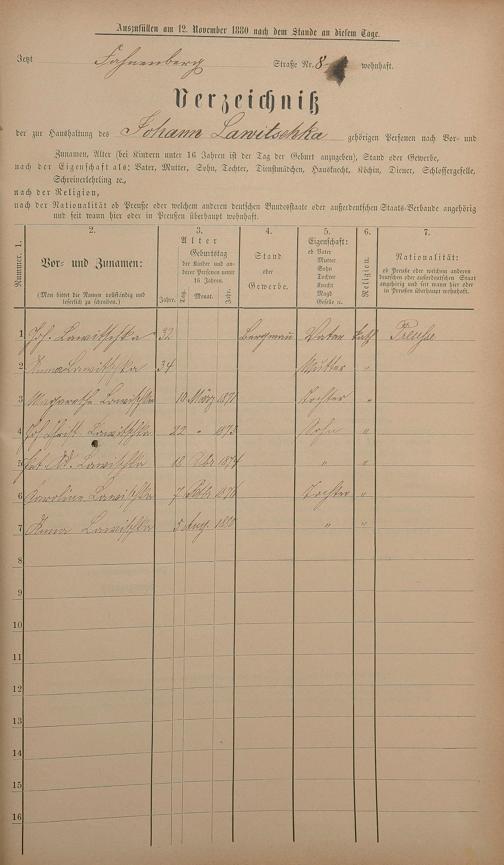 Auszufüllen am 12. November 1880 nach dem Stande an diesem Tage.
Jetzt Fahnenberg Straße Nr. 8 wohnhaft.
Verzeichniß
der zur Haushaltung des Johann Lawitschka gehörigen Personen nach Vor- und
Zunamen, Alter (bei Kindern unter 16 Jahren ist der Tag der Geburt anzugeben), Stand oder Gewerbe,
nach der Eigenschaft als: Vater, Mutter, Sohn, Tochter, Dienstmädchen, Hausknecht, Köchin, Diener, Schlossergeselle,
Schreinerlehrling ec.,
nach der Religion,
nach der Nationalität ob Preuße oder welchem anderen deutschen Bundesstaate oder außerdeutschen Staats-Verbande angehörig
und seit wann hier oder in Preußen überhaupt wohnhaft.
Nummer. 1.
2.
Vor- und Zunamen:
(Man bittet die Namen vollständig und
leserlich zu schreiben.)
3.
Alter
Geburtstag
der Kinder und an-
derer Personen unter
16 Jahren.
Jahre. Tag. Monat. Jahr.
4.
Stand
oder
Gewerbe.
5.
Eigenschaft:
ob Vater
Mutter
Sohn
Tochter
Knecht
Magd
Geselle ec.
6.
Religion.
7.
Nationalität:
ob Preuße oder welchem anderen
deutschen oder außerdeutschen Staat
angehörig und seit wann hier oder
in Preußen überhaupt wohnhaft.
1 Joh. Lawitschka 32 Bergmann Vater Kath. Preuße
2 Anna Lawitschka 34 Mutter "
3 Lawischka 10 März Tochter "
4 Lawitschka 22 " 1873 Sohn "
5 Lawischka 18 1874 " "
6 Karoline Lawischka 7 1876 Tochter "
7 Anna Lawischka 5 Aug. 1880 " "
8
9
10
11
12
13
14
15
16